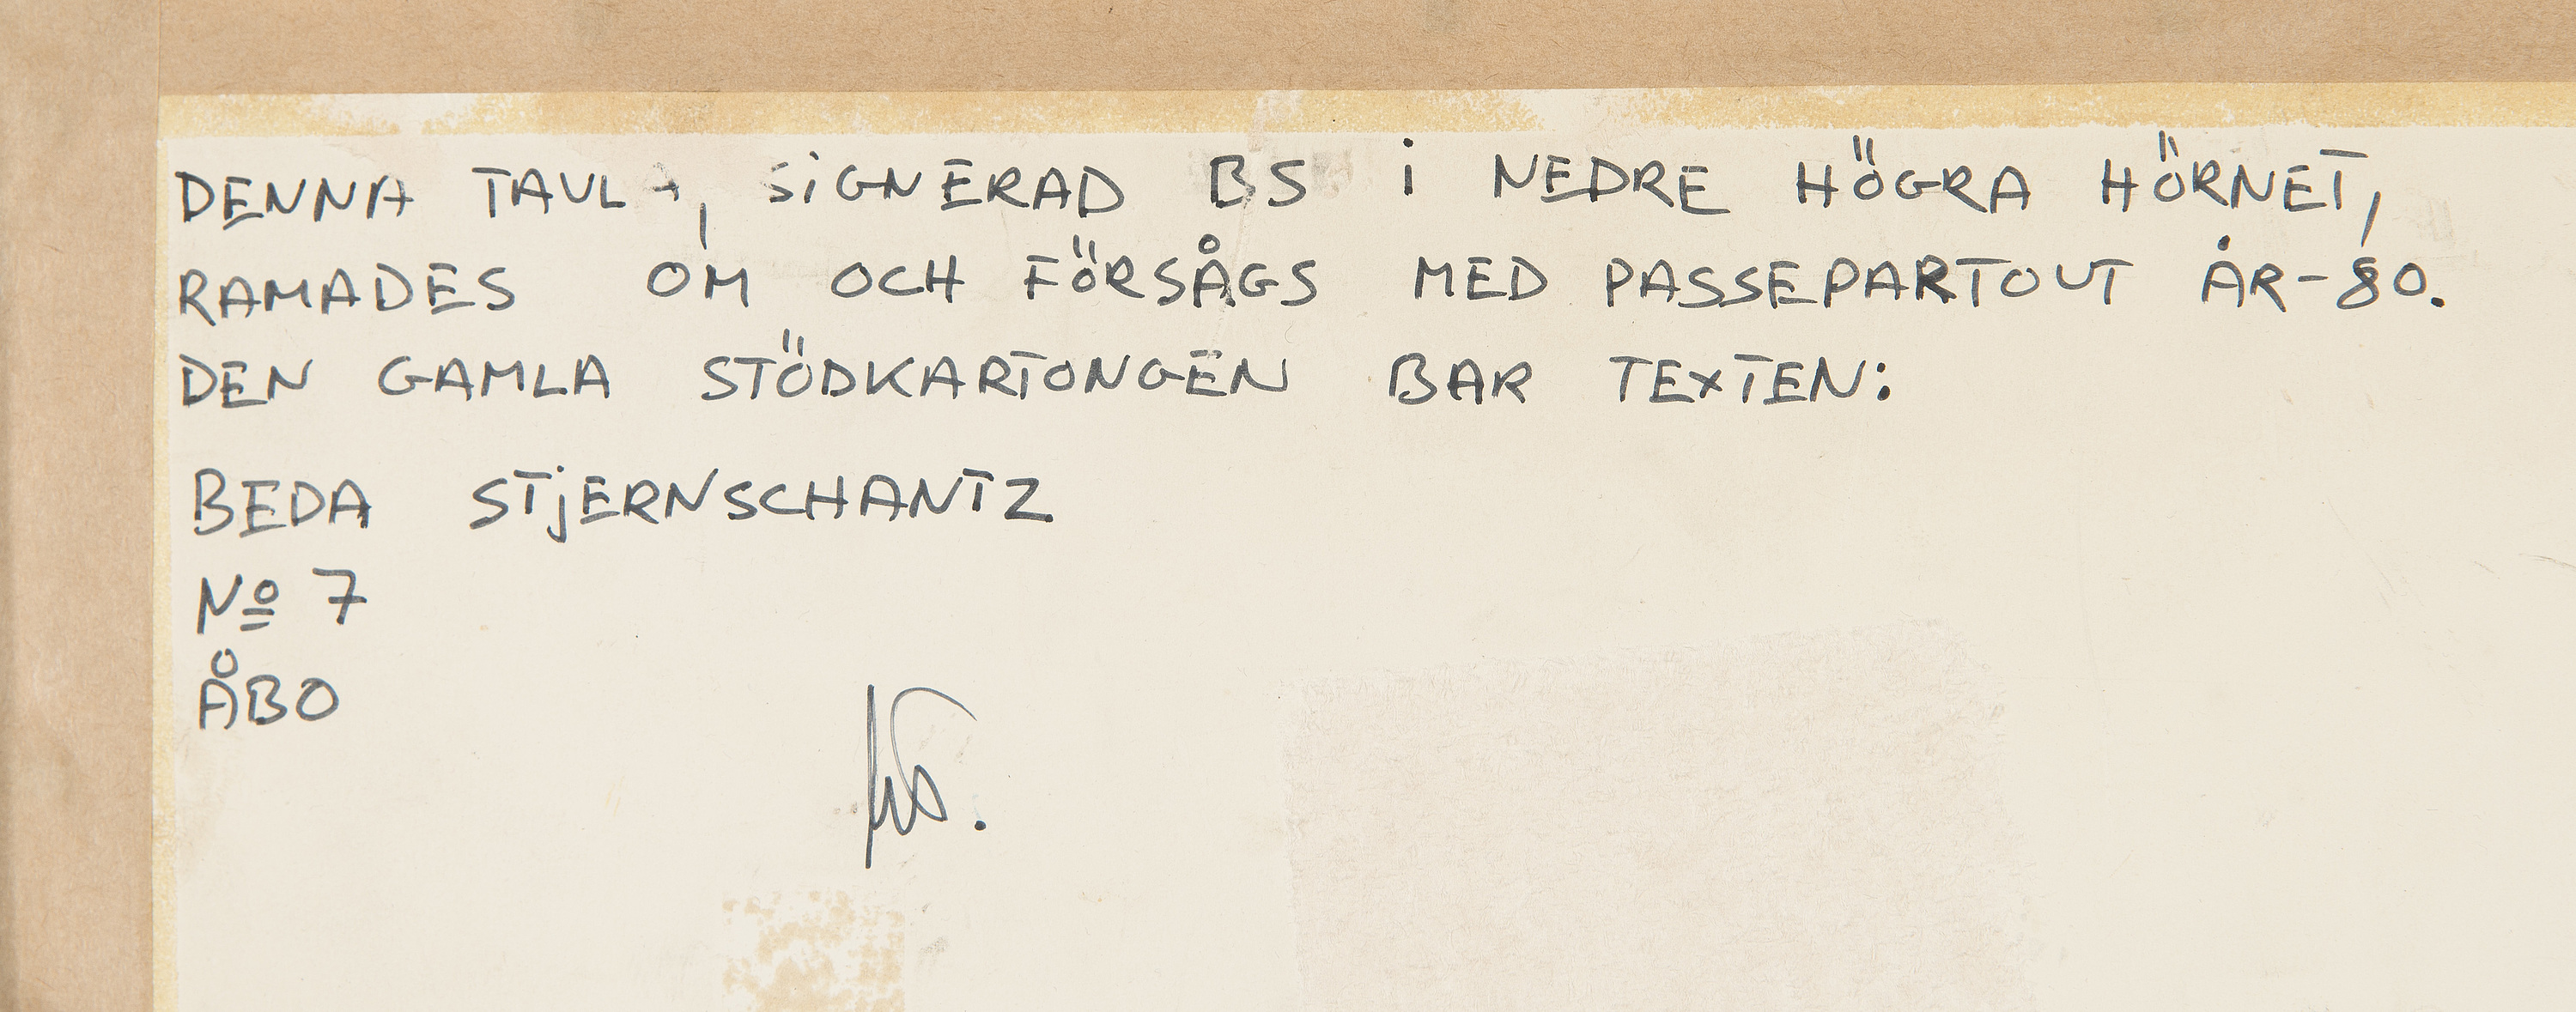 DENNA TAVLA, SiGNERAD BS i NEDRE HÖGRA HÖRNET,
RAMADES OM OCH FÖRSÅGS MED PASSEPARTOUT ÅR-80.
DEN GAMLA STÖDKARTONGEN BAR TEXTEN:
BEDA STjERNSCHANTZ
Nº 7
ÅBO